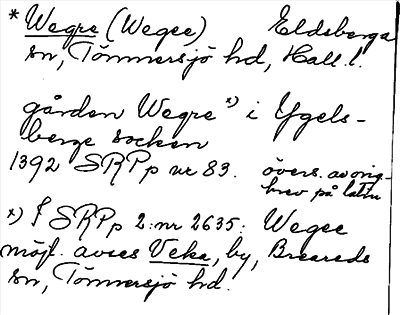 * Wegre (Wegee) Eldsberga
sn, Tönnersjö hd, Hall. l.
gården Wegre x) i Ygels-
berge socken
1392 SRPp nr 83. övers. av orig.-
brev på latin
x) I SRPp 2: nr 2635: Wegee
möjl. avses Veka, by, Breareds
sn, Tönnersjö hd.